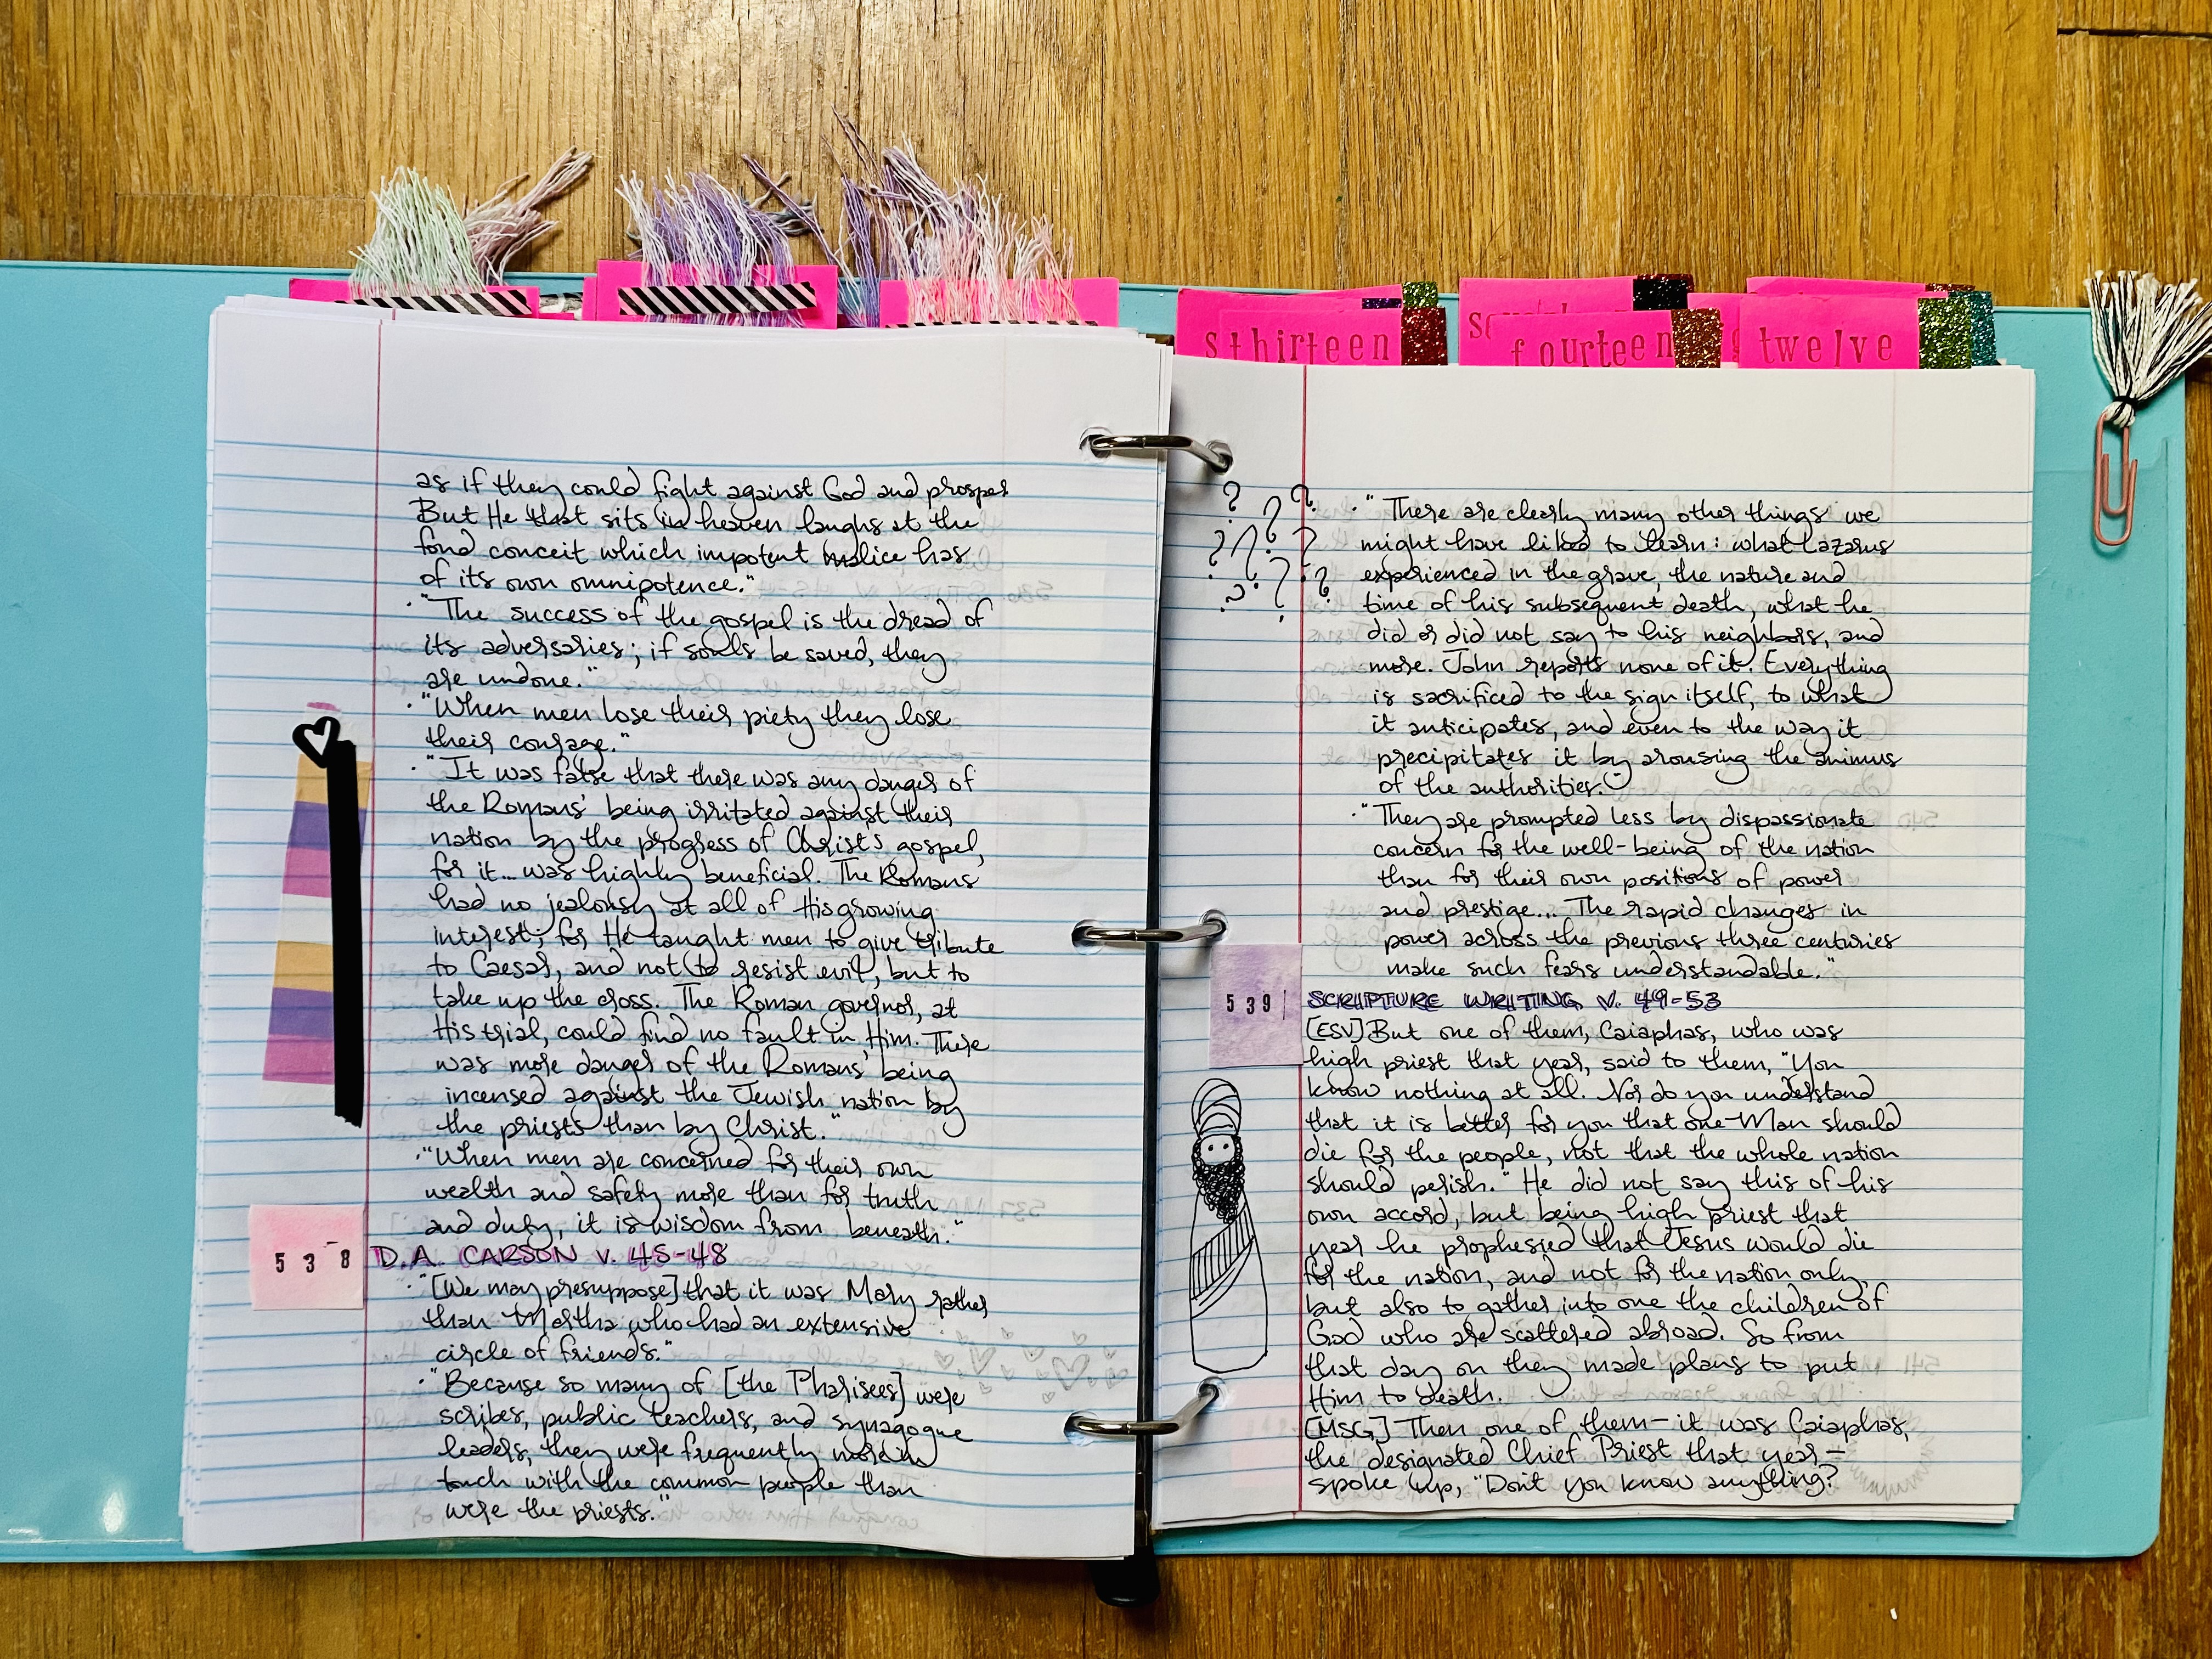 as if they could fight against God and prosper.
But He that sits in heaven laughs at the
fond conceit which impotent malice has
of its own omnipotence."
· "The success of the gospel is the dread of
its adversaries; if souls be saved, they
are undone."
· "When men lose their piety they lose
their courage."
· "It was false that there was any danger of
the Romans' being irritated against their
nation by the progress of Christ's gospel,
for it... was highly beneficial. The Romans
had no jealousy at all of His growing
interest; for He taught men to give tribute
to Caesar, and not to resist evil, but to
take up the cross. The Roman governor, at
His trial, could find no fault in Him. There
was more danger of the Romans' being
incensed against the Jewish nation by
the priests than by Christ."
· "When men are concerned for their own
wealth and safety more than for truth
and duty, it is wisdom from beneath."
538 D.A. CARSON v. 45-48
· "[We may presuppose] that it was Mary rather
than Martha who had an extensive
circle of friends."
· "Because so many of [the Pharisees] were
scribes, public teachers, and synagogue
leaders, they were frequently more in
touch with the common people than
were the priests."
sthirteen
fourteen
twelve
? ? ? ? ? ? ? ? ?
· "There are clearly many other things we
might have liked to learn: what Lazarus
experienced in the grave, the nature and
time of his subsequent death, what he
did or did not say to his neighbors, and
more. John reports none of it. Everything
is sacrificed to the sign itself, to what
it anticipates, and even to the way it
precipitates it by arousing the animus
of the authorities."
· "They are prompted less by dispassionate
concern for the well-being of the nation
than for their own positions of power
and prestige... The rapid changes in
power across the previous three centuries
make such fears understandable."
539 SCRIPTURE WRITING v. 49-53
[ESV] But one of them, Caiaphas, who was
high priest that year, said to them, "You
know nothing at all. Nor do you understand
that it is better for you that one Man should
die for the people, not that the whole nation
should perish." He did not say this of his
own accord, but being high priest that
year he prophesied that Jesus would die
for the nation, and not for the nation only,
but also to gather into one the children of
God who are scattered abroad. So from
that day on they made plans to put
Him to death.
[MSG] Then one of them—it was Caiaphas,
the designated Chief Priest that year—
spoke up, "Don't you know anything?